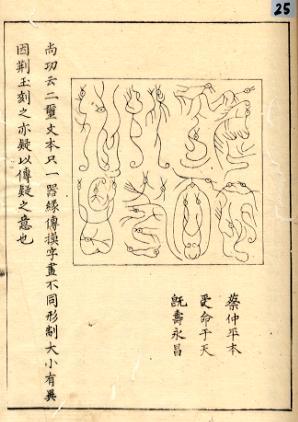 25
蔡仲平本
受命于天
既壽永昌
尚功云二璽文本只一器緣傳摸字畫不同形制大小有異
因荆玉刻之亦疑以傳疑之意也